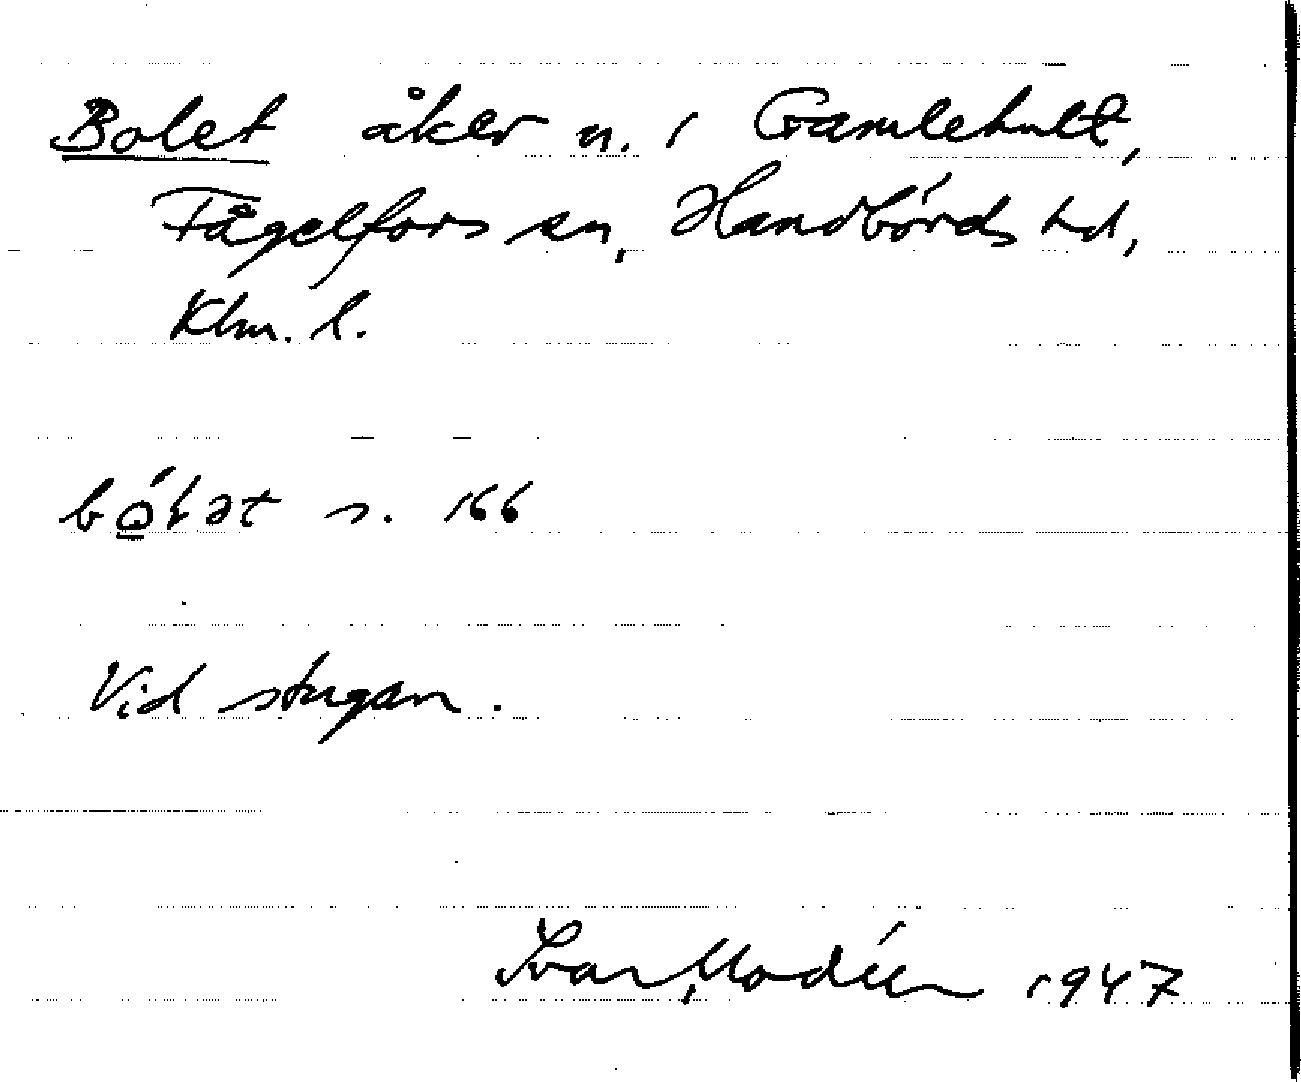 Bolet åker n. i Gamlehult,
Fågelfors sn, Handbörds hd,
Klm. l.
bó̱lət s. 166
Vid stugan.
Ivar Modéer 1947